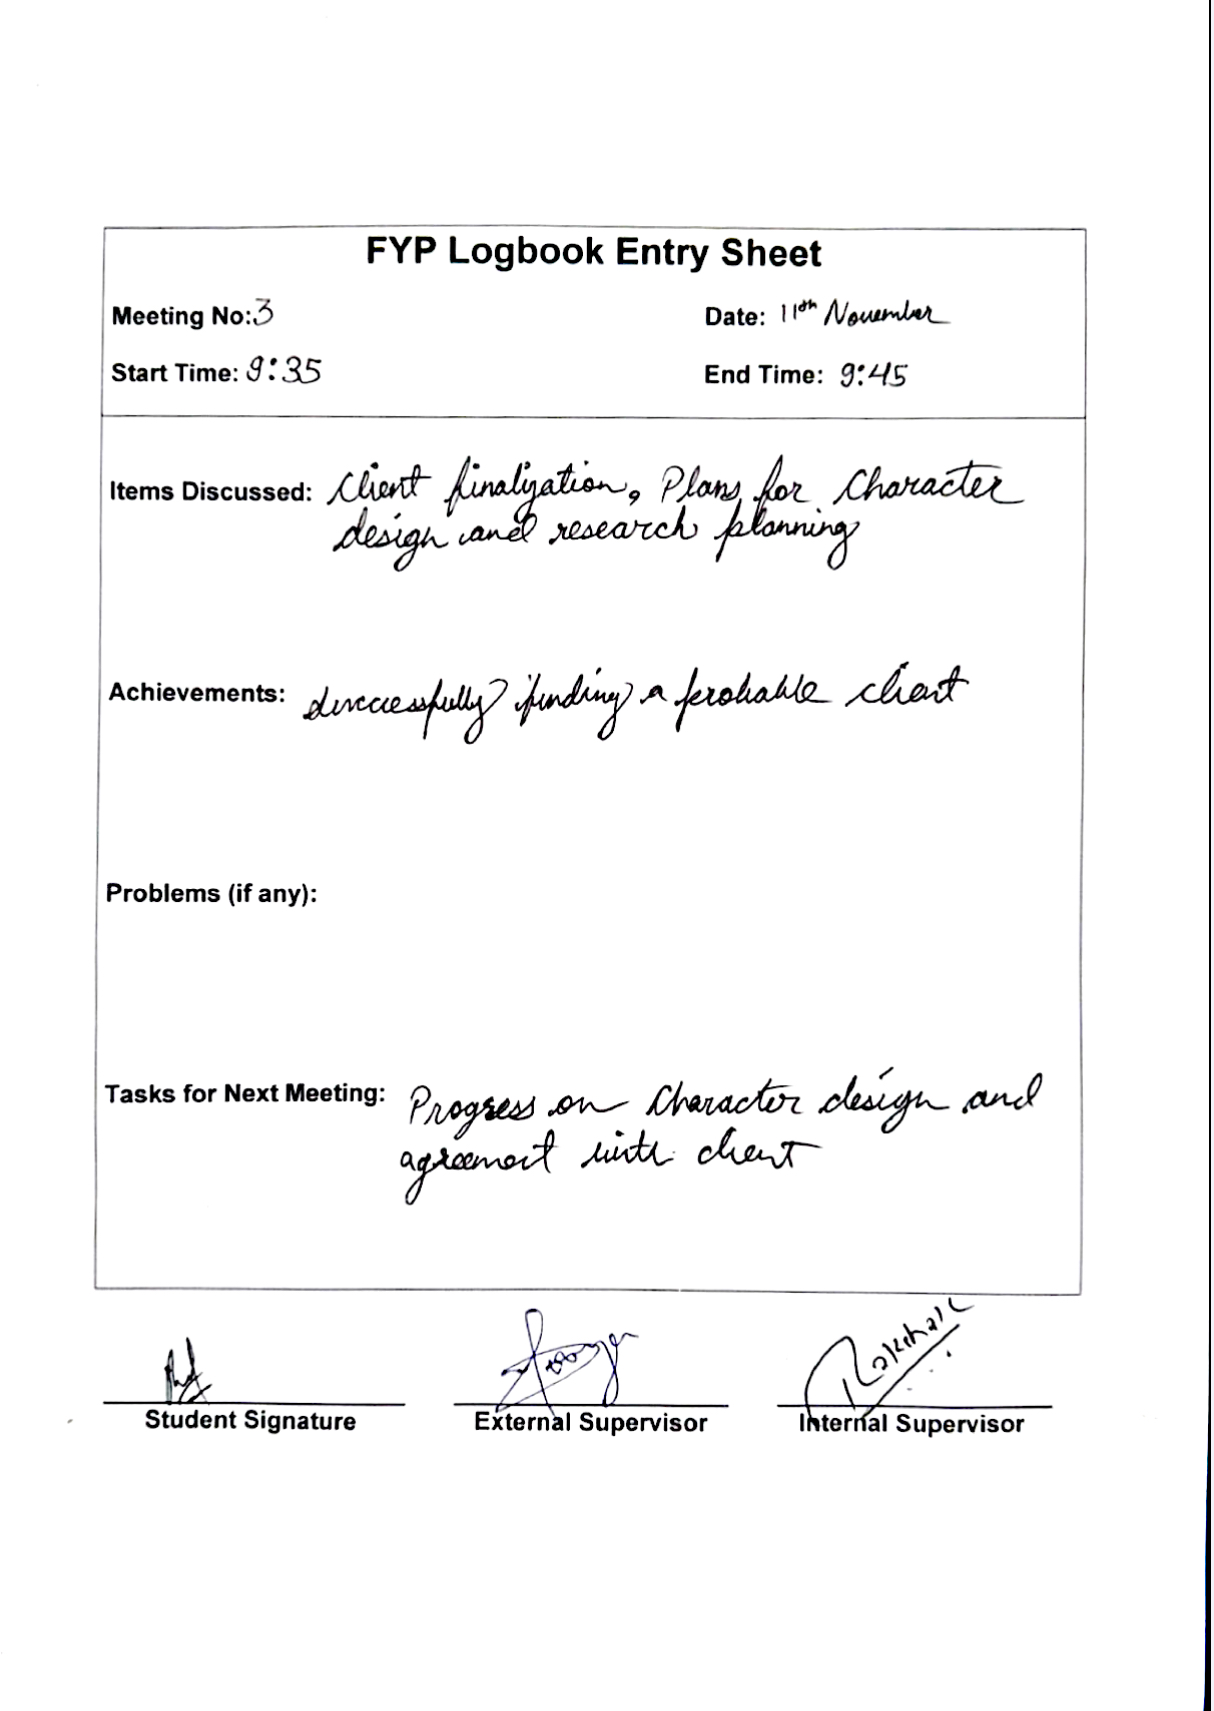 FYP Logbook Entry Sheet
Meeting No: 3 Date: 11th November
Start Time: 9:35 End Time: 9:45
Items Discussed: Client finalization, Plans for Character
design and research planning
Achievements: Successfully finding a probable client
Problems (if any):
Tasks for Next Meeting: Progress on Character design and
agreement with client
Student Signature External Supervisor Internal Supervisor